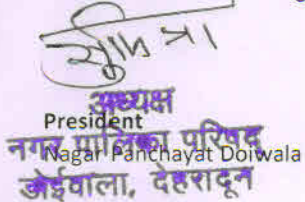 सुमित्रा
अध्यक्ष
President
नगर पालिका परिषद्
Nagar Panchayat Doiwala
डोईवाला, देहरादून